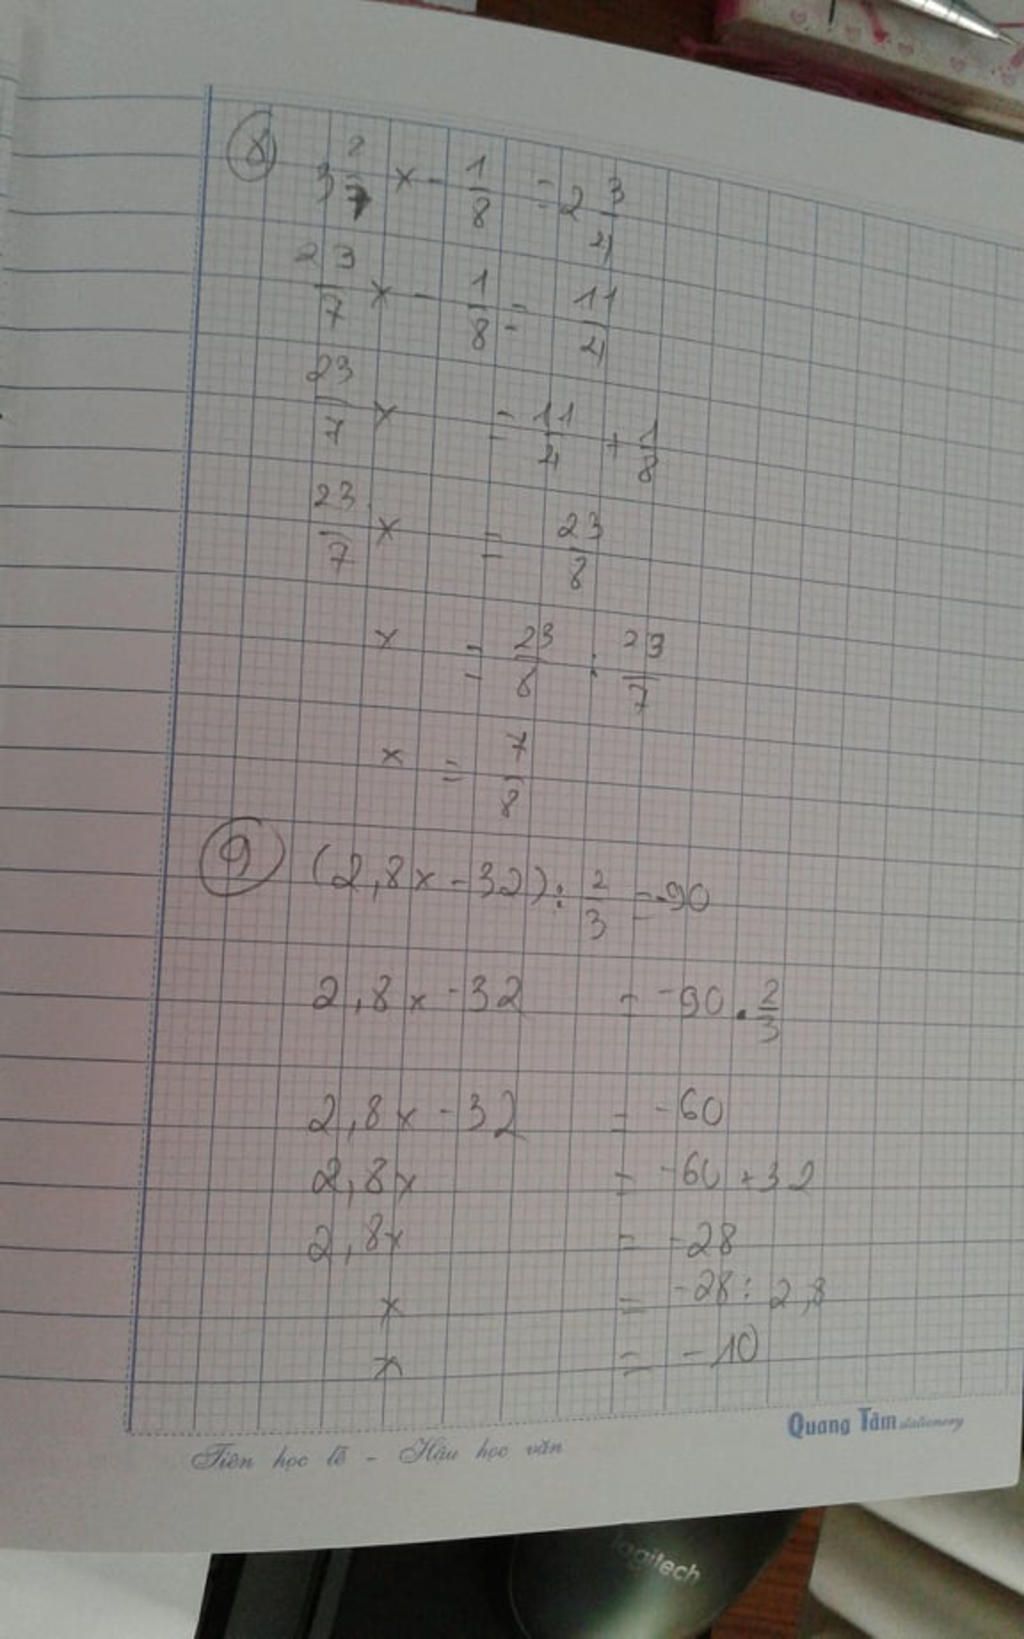 8) 3 2/7 x - 1/8 = 2 3/4
23/7 x - 1/8 = 11/4
23/7 x = 11/4 + 1/8
23/7 x = 23/8
x = 23/8 : 23/7
x = 7/8
9) (2,8x - 32) : 2/3 = -90
2,8x - 32 = -90 . 2/3
2,8x - 32 = -60
2,8x = -60 + 32
2,8x = -28
x = -28 : 2,8
x = -10
Quang Tâm stationery
Tiên học lễ - Hậu học văn
logitech